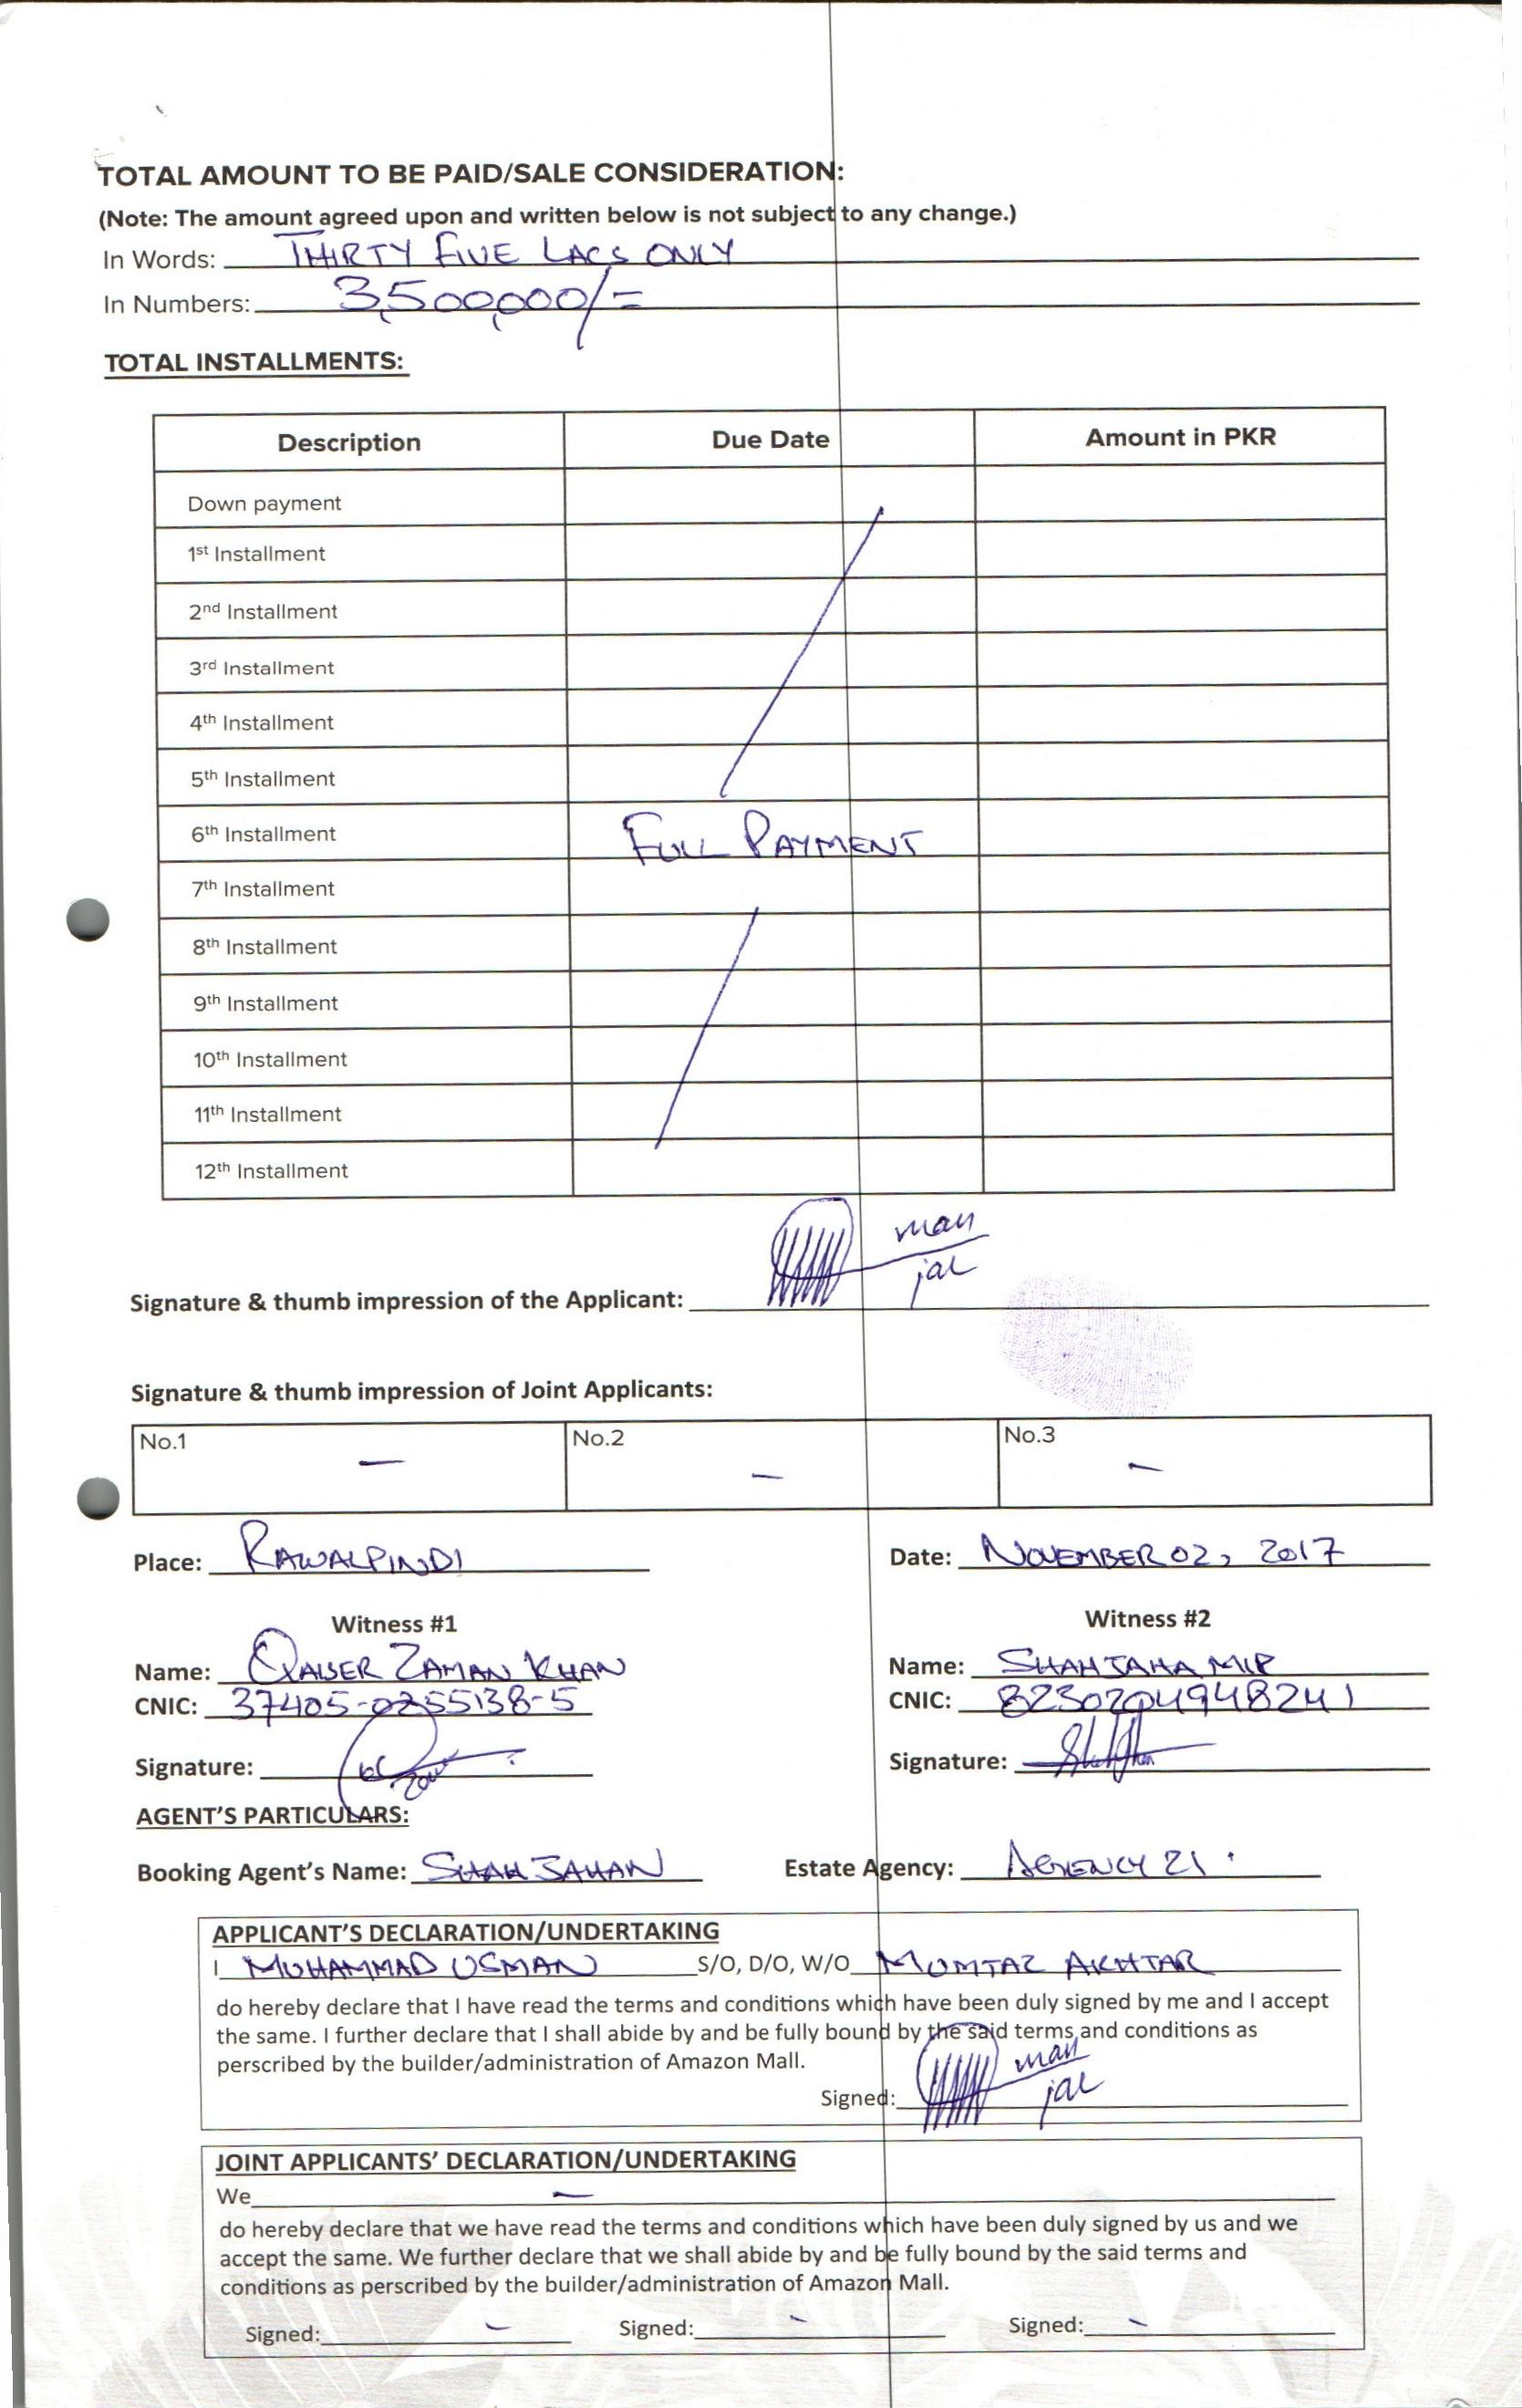 TOTAL AMOUNT TO BE PAID/SALE CONSIDERATION:
(Note: The amount agreed upon and written below is not subject to any change.)
In Words: THIRTY FIVE LACS ONLY
In Numbers: 3,500,000/=
TOTAL INSTALLMENTS:
Description Due Date Amount in PKR
Down payment
1st Installment
2nd Installment
3rd Installment
4th Installment
5th Installment
6th Installment FULL PAYMENT
7th Installment
8th Installment
9th Installment
10th Installment
11th Installment
12th Installment
man
jal
Signature & thumb impression of the Applicant:
Signature & thumb impression of Joint Applicants:
No.1 – No.2 – No.3 –
Place: RAWALPINDI Date: NOVEMBER 02, 2017
Witness #1 Witness #2
Name: QAISER ZAMAN KHAN Name: SHAHJAHA MIR
CNIC: 37405-0255138-5 CNIC: 8230204948241
Signature: Signature:
AGENT'S PARTICULARS:
Booking Agent's Name: SHAH JAHAN Estate Agency: AGENCY 21
APPLICANT'S DECLARATION/UNDERTAKING
I MUHAMMAD USMAN S/O, D/O, W/O MOMTAZ AKHTAR
do hereby declare that I have read the terms and conditions which have been duly signed by me and I accept
the same. I further declare that I shall abide by and be fully bound by the said terms and conditions as
perscribed by the builder/administration of Amazon Mall.
man
Signed: jal
JOINT APPLICANTS' DECLARATION/UNDERTAKING
We –
do hereby declare that we have read the terms and conditions which have been duly signed by us and we
accept the same. We further declare that we shall abide by and be fully bound by the said terms and
conditions as perscribed by the builder/administration of Amazon Mall.
Signed: – Signed: – Signed: –